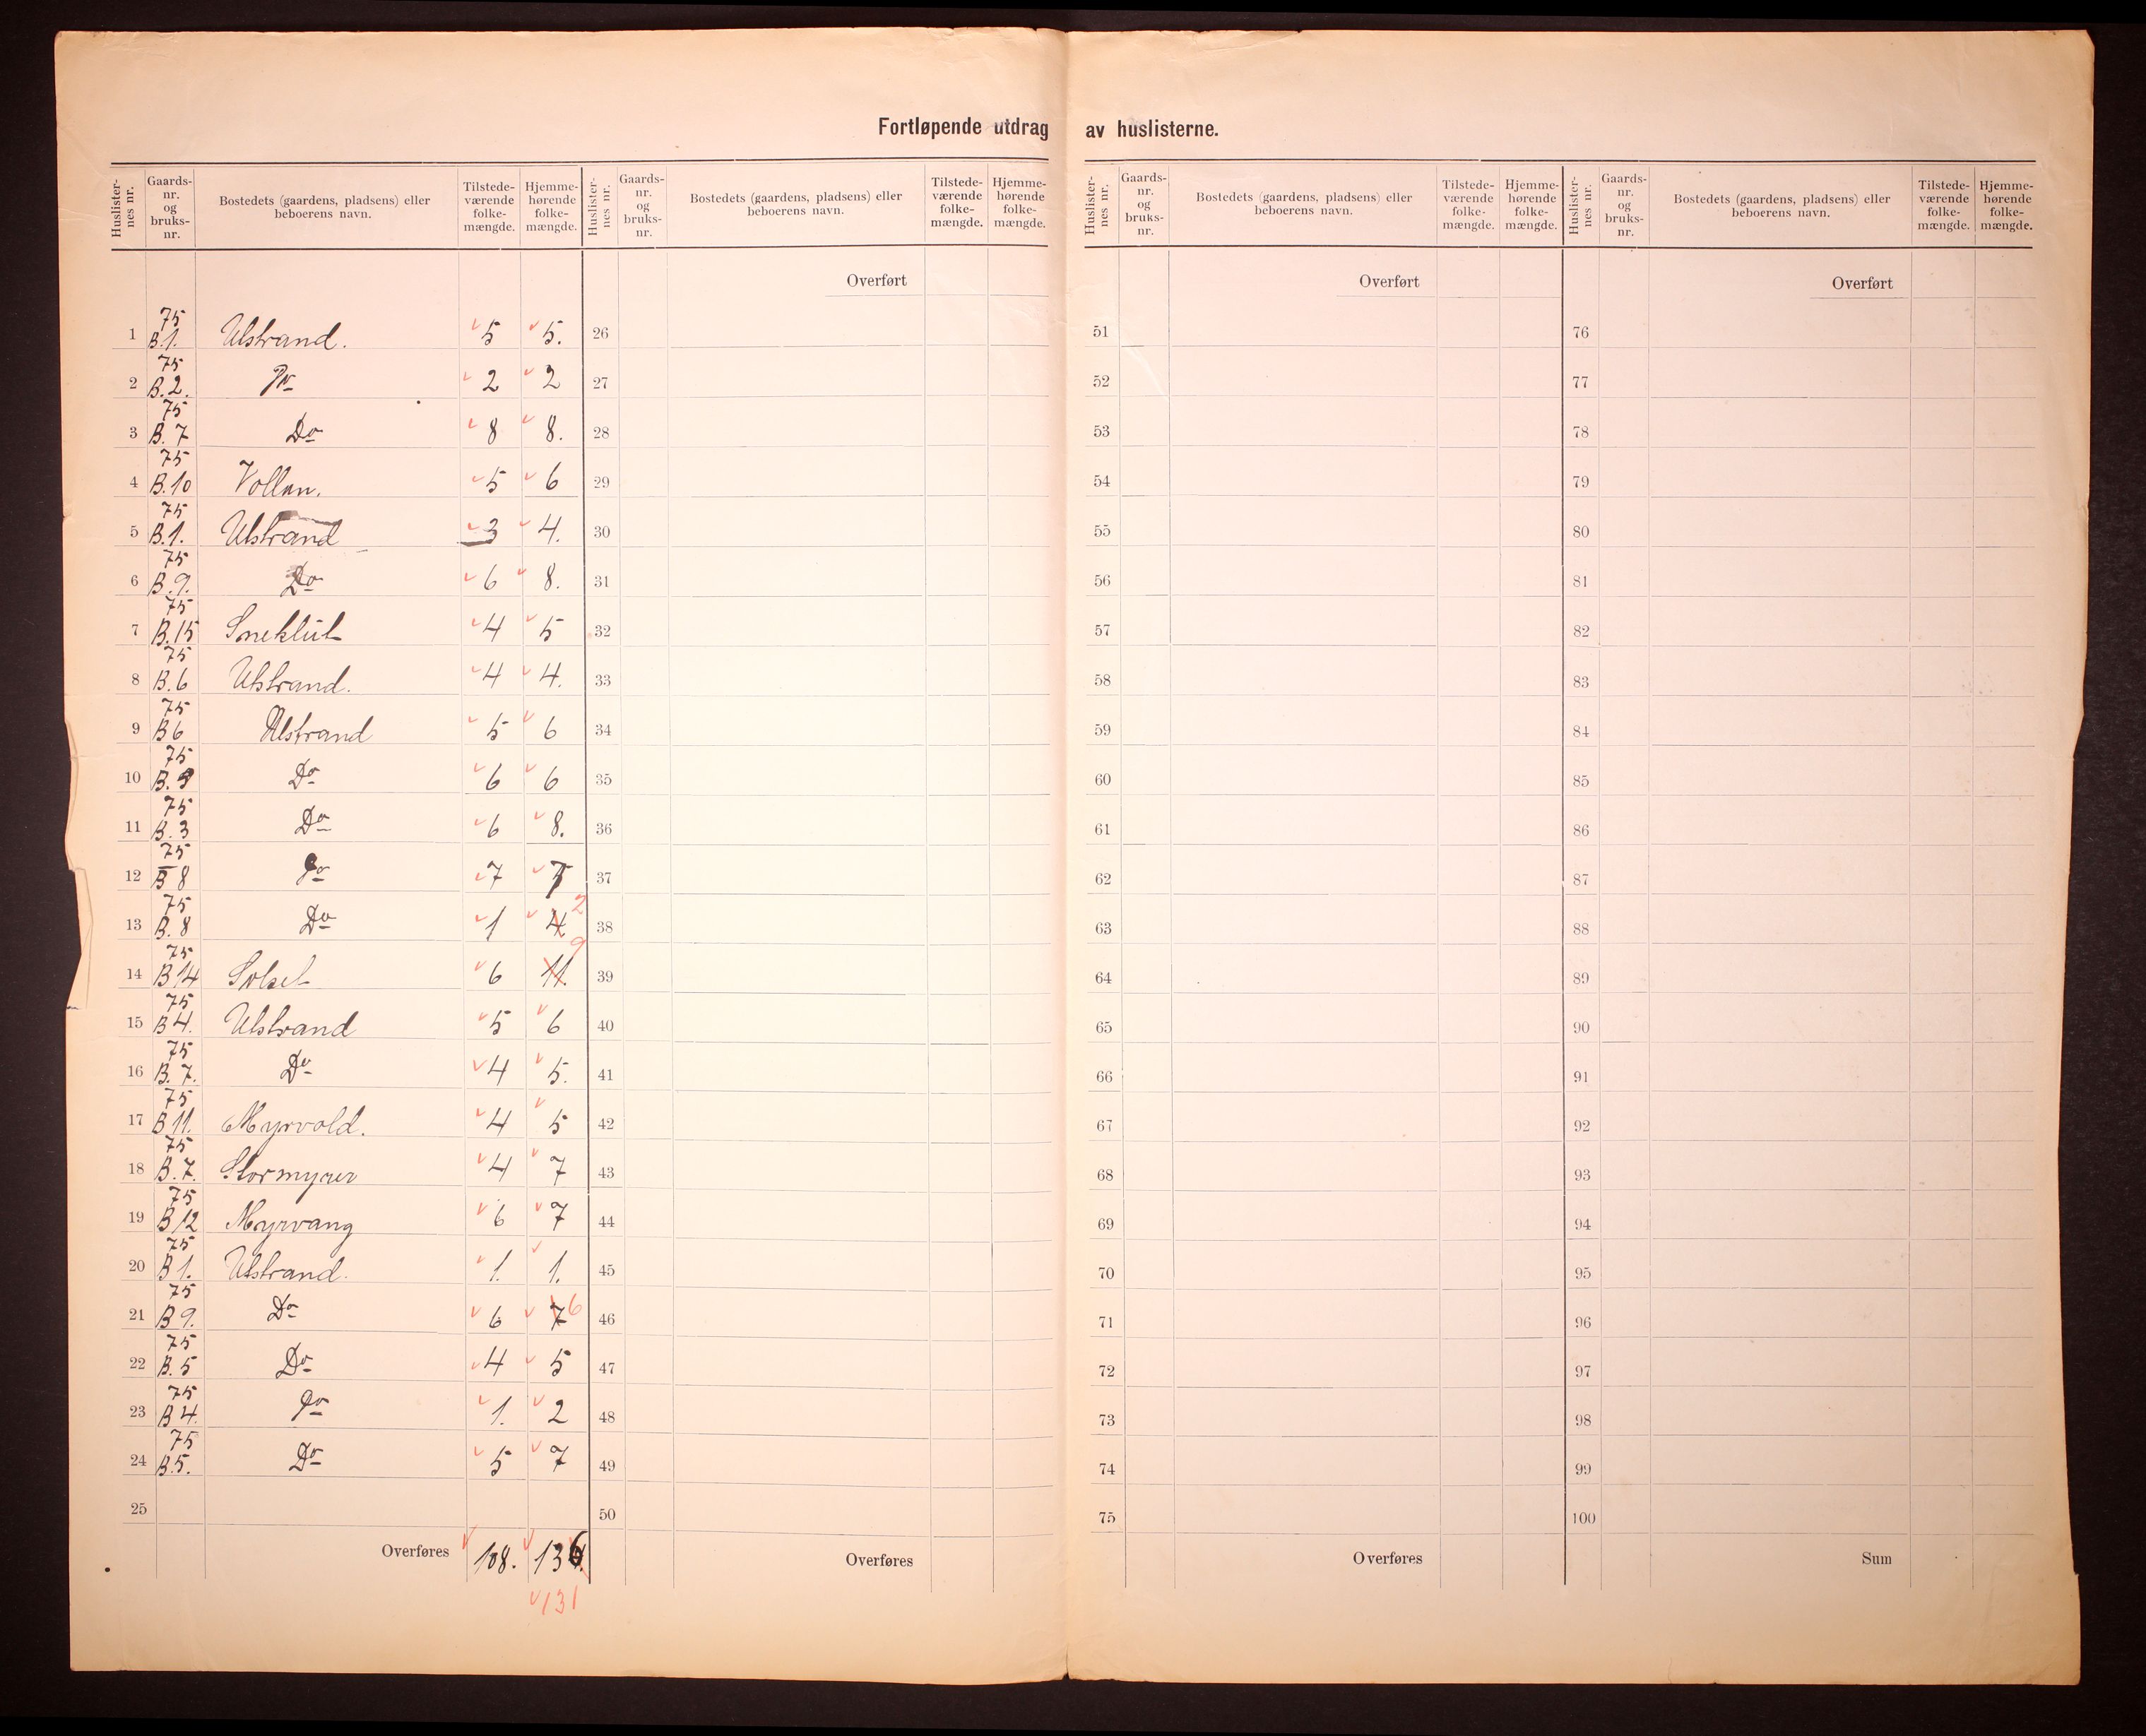 Fortløpende utdrag av huslisterne.
Huslister-nes nr. Gaards-nr. og bruks-nr. Bostedets (gaardens, pladsens) eller beboerens navn. Tilstede-værende folke-mængde. Hjemme-hørende folke-mængde. Huslister-nes nr. Gaards-nr. og bruks-nr. Bostedets (gaardens, pladsens) eller beboerens navn. Tilstede-værende folke-mængde. Hjemme-hørende folke-mængde. Huslister-nes nr. Gaards-nr. og bruks-nr. Bostedets (gaardens, pladsens) eller beboerens navn. Tilstede-værende folke-mængde. Hjemme-hørende folke-mængde. Huslister-nes nr. Gaards-nr. og bruks-nr. Bostedets (gaardens, pladsens) eller beboerens navn. Tilstede-værende folke-mængde. Hjemme-hørende folke-mængde.
Overført Overført Overført
1 75 B.1. Ulstrand. 5 5. 26 51 76
2 75 B.2. Do 2 2 27 52 77
3 75 B.7 Do 8 8. 28 53 78
4 75 B.10 Vollan. 5 6 29 54 79
5 75 B.1. Ulstrand 3 4. 30 55 80
6 75 B.9. Do 6 8. 31 56 81
7 75 B.15 Sneklüt 4 5 32 57 82
8 75 B.6 Ulstrand. 4 4. 33 58 83
9 75 B6 Ulstrand 5 6 34 59 84
10 75 B.9 Do 6 6 35 60 85
11 75 B.3 Do 6 8. 36 61 86
12 75 B 8 Do 7 7 37 62 87
13 75 B.8 Do 1 4. 2 38 63 88
14 75 B14 Solset 6 11. 9 39 64 89
15 75 B4. Ulstrand 5 6 40 65 90
16 75 B.7. Do 4 5. 41 66 91
17 75 B11. Myrvold. 4 5 42 67 92
18 75 B.7. Stormyrer 4 7 43 68 93
19 75 B12 Myrvang 6 7 44 69 94
20 75 B1. Ulstrand. 1. 1. 45 70 95
21 75 B9. Do 6 7 6 46 71 96
22 75 B.5 Do 4 5 47 72 97
23 75 B4. Do 1. 2 48 73 98
24 75 B.5. Do 5 7 49 74 99
25 50 75 100
Overføres 108. 136. Overføres Overføres Sum
131